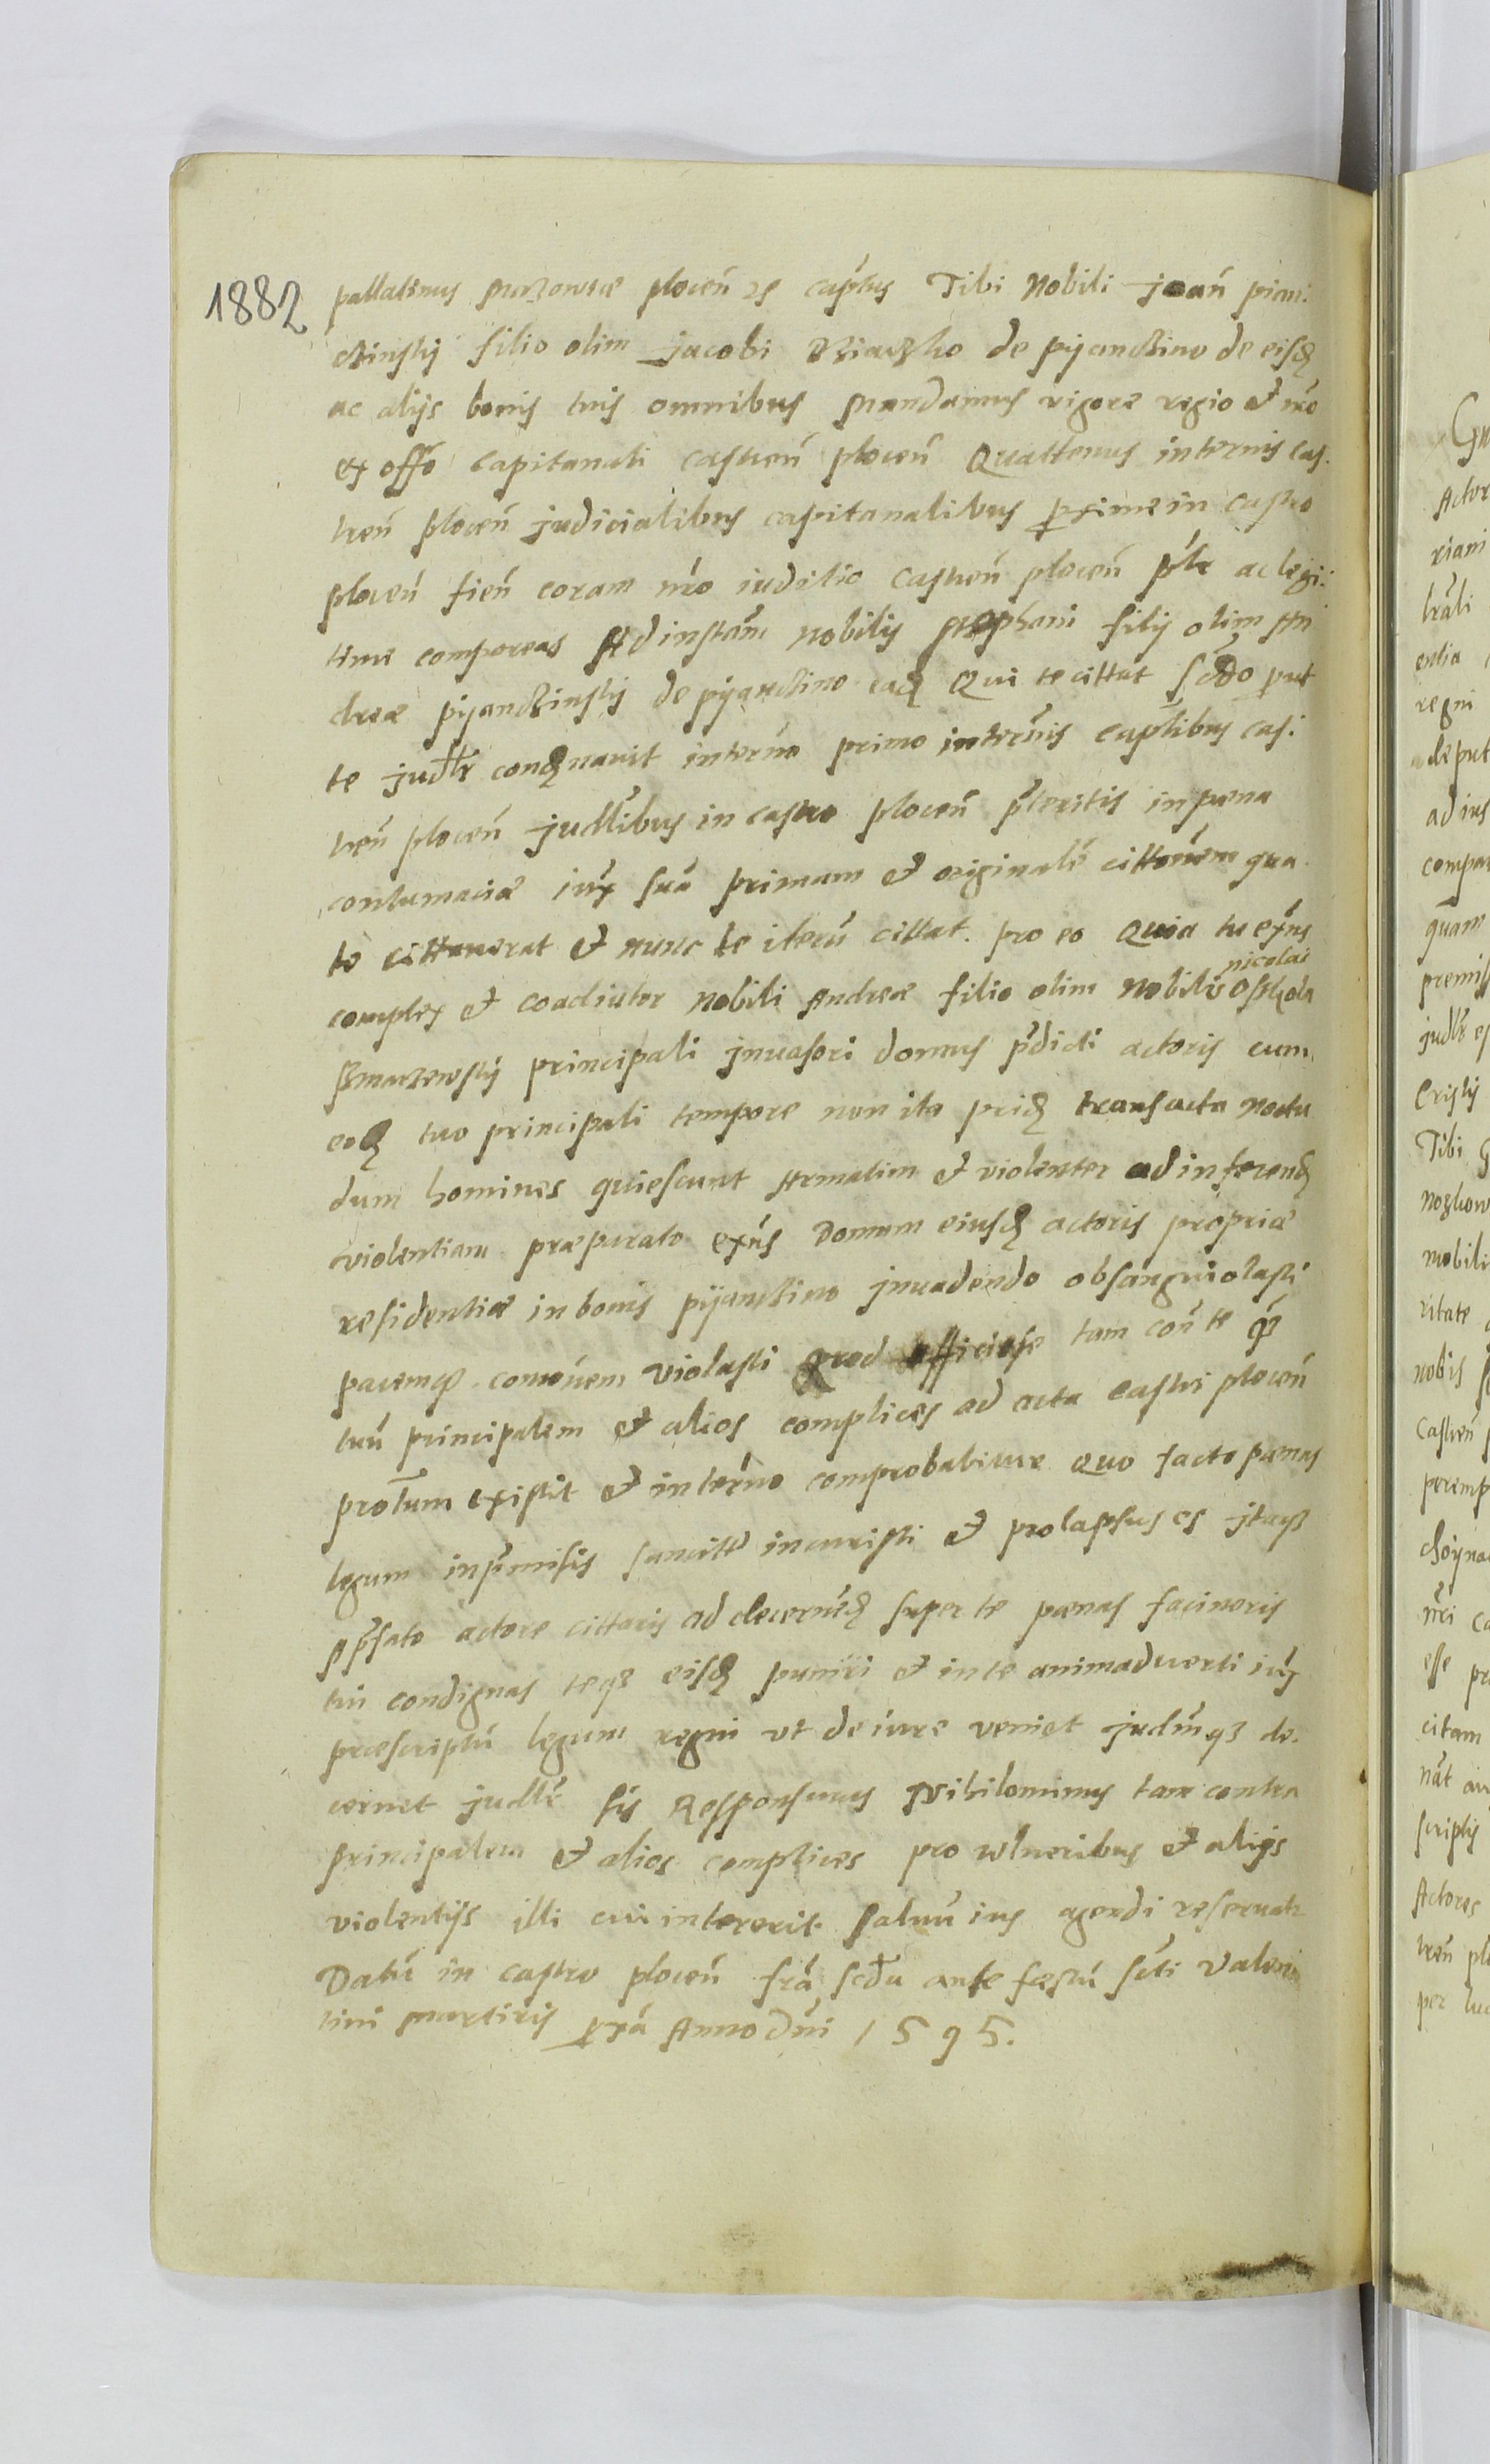 1882
pallatinus Mazoviæ plocen̄ zs captus Tibi Nobili joan̄ piani:
czinskÿ filio olim jacobi de pÿanczino de eisdꝫ
ac alijs bonis tuis omnibus Mandamus rigore regio et nr̄o
ex offō Capitaneali castren̄ plocen̄ Quattenus in ternis Cas.
tren̄ plocen̄ judicialibus capitanealibus pxime in castro
plocen̄ fien̄ coram nr̄o iuditio Castren̄ plocen̄ pl̄r ac legi:
time compareas Ad instam̄ Nobilis Stephani filij olim An
dreæ pÿanczinskÿ de pÿanczino eadꝫ Qui te cittat scdo put
te judl̄r condꝫnavit in ter̄no primo in ter̄nis Captl̄ibus cas:
tren̄ plocen̄ judl̄ibus in castro plocen̄ p̄teritis in pæna
contumaciæ iux̄ suā primam et originalē cittōnem qua
te cittaverat et nunc te iterū cittat. pro eo Quia tu ex̄ns
nicolai
complex et coadiutor Nobili Andreæ filio olim Nobilis
principali jnvasori domus p̄dicti actoris cum
eodꝫ tuo principali tempore non ita pridꝫ transacta Noctu
dum homines quiescunt Armatim et violenter ad inferendꝫ
violentiam præparato ex̄ns Domum eiusdꝫ actoris propriæ
residentiæ in bonis pÿanczino jnvadendo obsanguiolasti
pacemqꝫ com̄unem violasti Quod officiose tam con̄ te qꝫ
tuū principalem et alios complices ad acta Castri plocen̄
protūm existit et in ter̄no comprobabitur Quo facto pænas
legum in p̄missis sancitt incuristi et prolapsus es jtaqꝫ
p̄fato actore cittaris ad decernēdꝫ super te pænas facinoris
tui condignas teqꝫ eisdꝫ puniri et in te animadverti iux̄
præscriptū legum regni vt de iure veniet judm̄qꝫ de.
cernet judl̄r sis Responsurus Nihilominus tam contra
principalem et alios complices pro wlneribus et alijs
violentijs illi cui intererit salvū ius agendi reservatr
Datū in castro plocen̄ fr̄a scda ante fæstū scti Valen
tini Martiris pxā Anno dn̄i 1595.